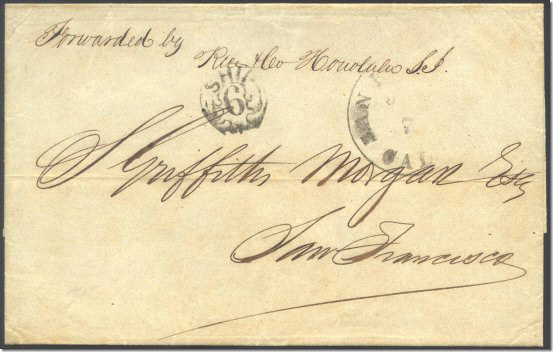 Forwarded by
Rice & Co Honolulu S.I.
SHIP
6
7
CAL
S Griffitths Morgan Esq
San Francisco